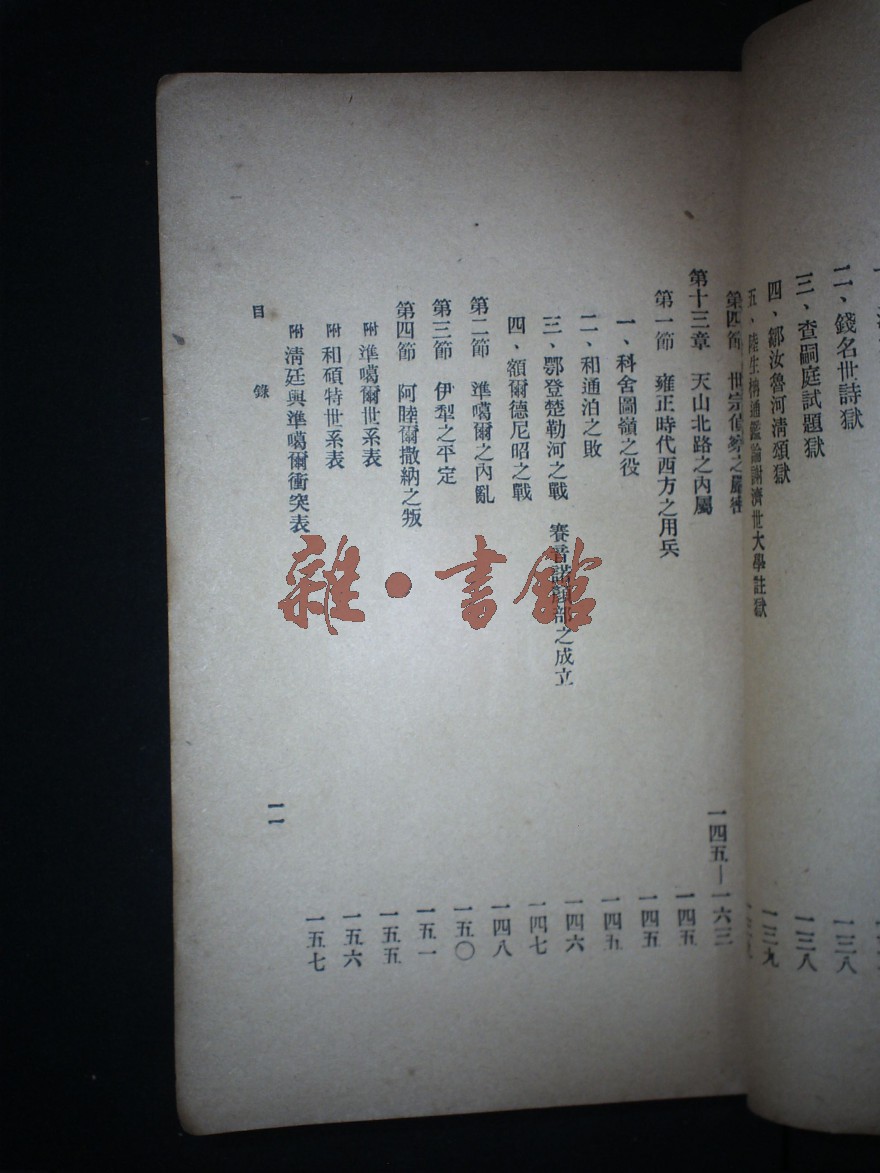 二、錢名世詩獄 一三八
三、查嗣庭試題獄 一三八
四、鄒汝魯河清頌獄 一三九
五、陸生枬通鑑論謝濟世大學註獄
第四節 世宗偵察之嚴密
第十三章 天山北路之內屬 一四五—一六三
第一節 雍正時代西方之用兵 一四五
一、科舍圖嶺之役 一四五
二、和通泊之敗 一四五
三、鄂登楚勒河之戰 賽音諾顏部之成立 一四六
四、額爾德尼昭之戰 一四七
第二節 準噶爾之內亂 一四八
第三節 伊犁之平定 一五〇
第四節 阿睦爾撒納之叛 一五一
附 準噶爾世系表 一五五
附 和碩特世系表 一五六
附 清廷與準噶爾衝突表 一五七
目錄
一一
雜·書館